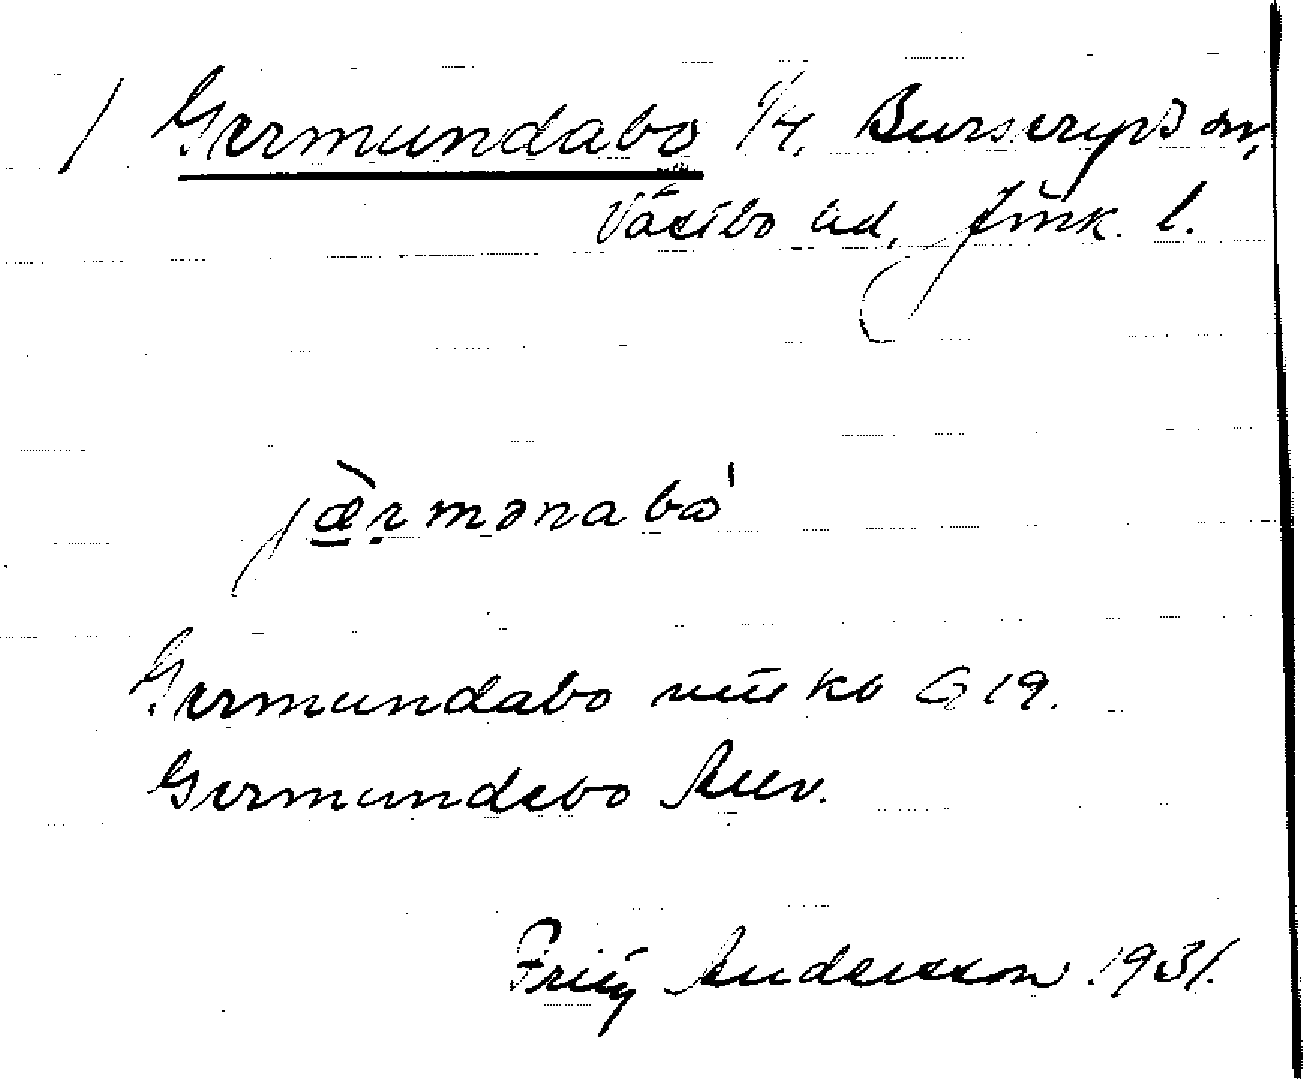 / Germundabo 1/4, Burseryds sn,
Västbo hd, Jönk. l.
jæ̀rmənabo'
Germundabo mil kb G 19.
Germundebo Auv.
Fritz Andersson 1931.